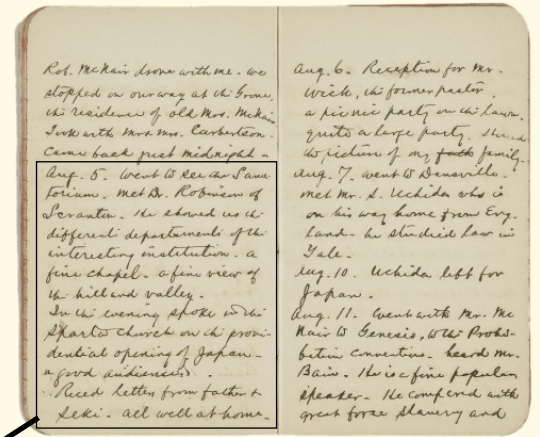 Rob. McNair drove with me. we
stopped on our way at the Grove,
the residence of old Mrs. McNair
Took with Mr & Mrs. Carbertson.
Came back just midnight.
Aug. 5. went to see the Sana
torium. Met Dr. Robinson of
Scranton. He showed us the
different departments of the
interesting institution. a
fine chapel. a fine view of
the hill and valley.
In the evening spoke in the
Sparta Church on the provi-
dential opening of Japan.
a good audience.
Reced letters from father &
Seki. all well at home.
Aug. 6. Reception for Mr.
Wick, the former pastor.
a picnic party on the lawn.
quite a large party. showed
the picture of my fath family.
Aug. 7. went to Dansville.
met Mr. S. Uchida who is
on his way home from Eng-
land. he studied law in
Yale.
Aug. 10. Uchida left for
Japan.
Aug. 11. Went with Mr. Mc
Nair to Genesis, to the Prohi-
bition convention. heard Mr.
Bain. He is a fine popular
speaker. He compered with
great force Slavery and